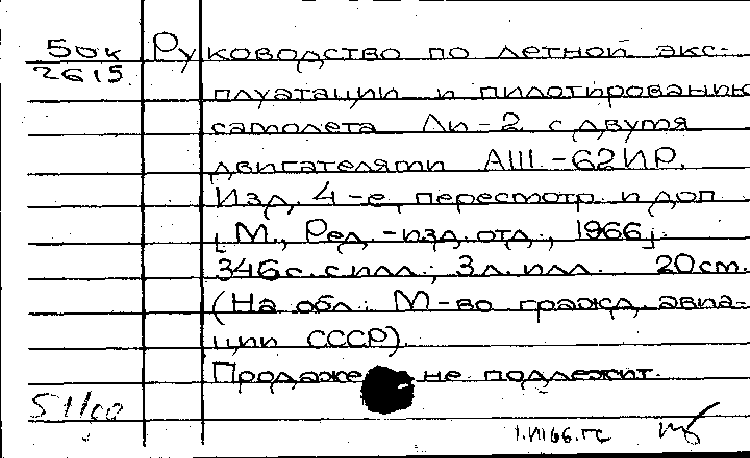 50к Руководство по летной экс-
2615 плуатации и пилотированию
самолета Ли-2 с двумя
двигателями АШ-62ИР.
Изд. 4-е, пересмотр. и доп.
[М., Ред.-изд. отд., 1966].
346 с. с илл.; 3 л. илл. 20 см.
(На обл.: М-во гражд. авиа-
ции СССР)
Продаже не подлежит.